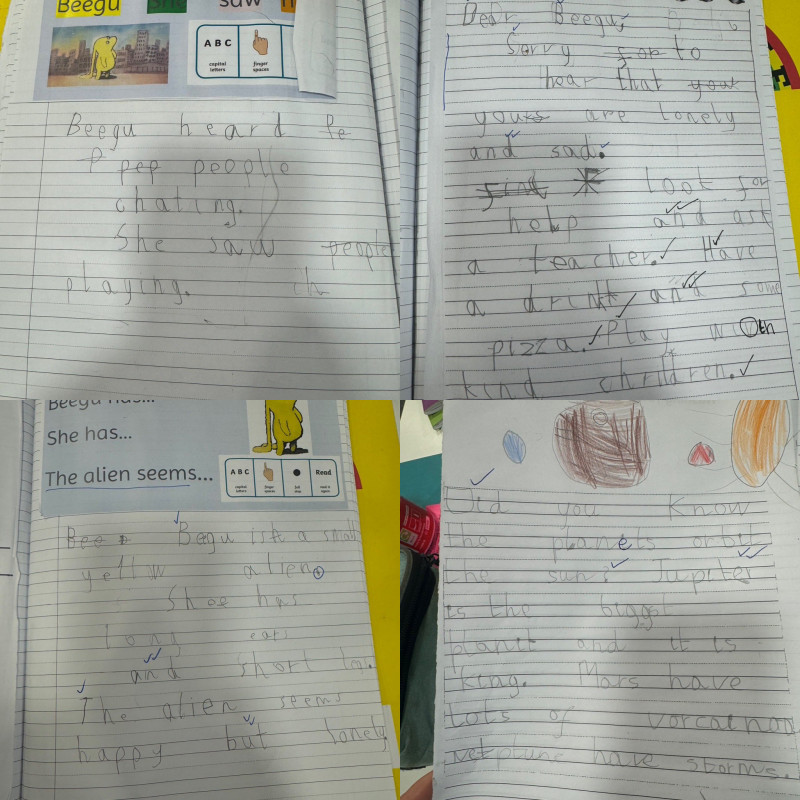 Beegu She saw
A B C
capital letters
finger spaces
Beegu heard Pe
P pep people
chating.
She saw people
playing. ch
Dear Beegu,
Sorry for to
hear that your
yours are Lonely
and sad.
find look for
help and ask
a teacher. Have
a drink, and some
pizza. Play with
kind children.
Beegu has...
She has...
The alien seems...
A B C
capital letters
finger spaces
full stop
Read
Bee Beegu is a small
yellow alien.
Shee has
long ears
and short
The alien seems
happy but lonely
Did you know
the planets orbit
the sun? Jupiter
is the biggst
planit and it is
king. Mars have
Lots of vorcanoo
netplune have storms.